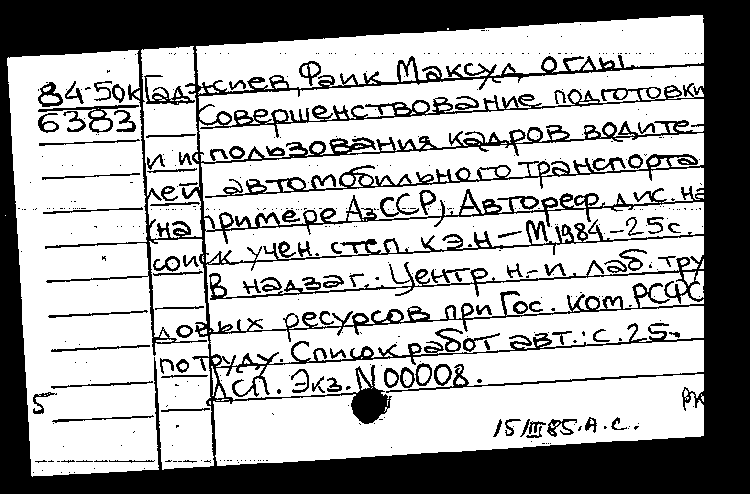 84-50к Гаджиев, Фаик Максуд оглы.
6383 Совершенствование подготовки
и использования кадров водите-
лей автомобильного транспорта
(на примере АзССР). Автореф. дис. на
соиск. учен. степ. к.э.н. — М., 1984. — 25с.
В надзаг.: Центр. н.-и. лаб. тру
довых ресурсов при Гос. ком. РСФС
по труду. Список работ авт.: с. 25.
ДСП. Экз. N 00008.
5
15/III 85. А.С.